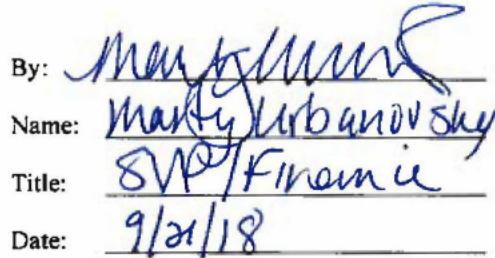 By:
Name: Marty Urbanovsky
Title: SVP/Finance
Date: 9/21/18